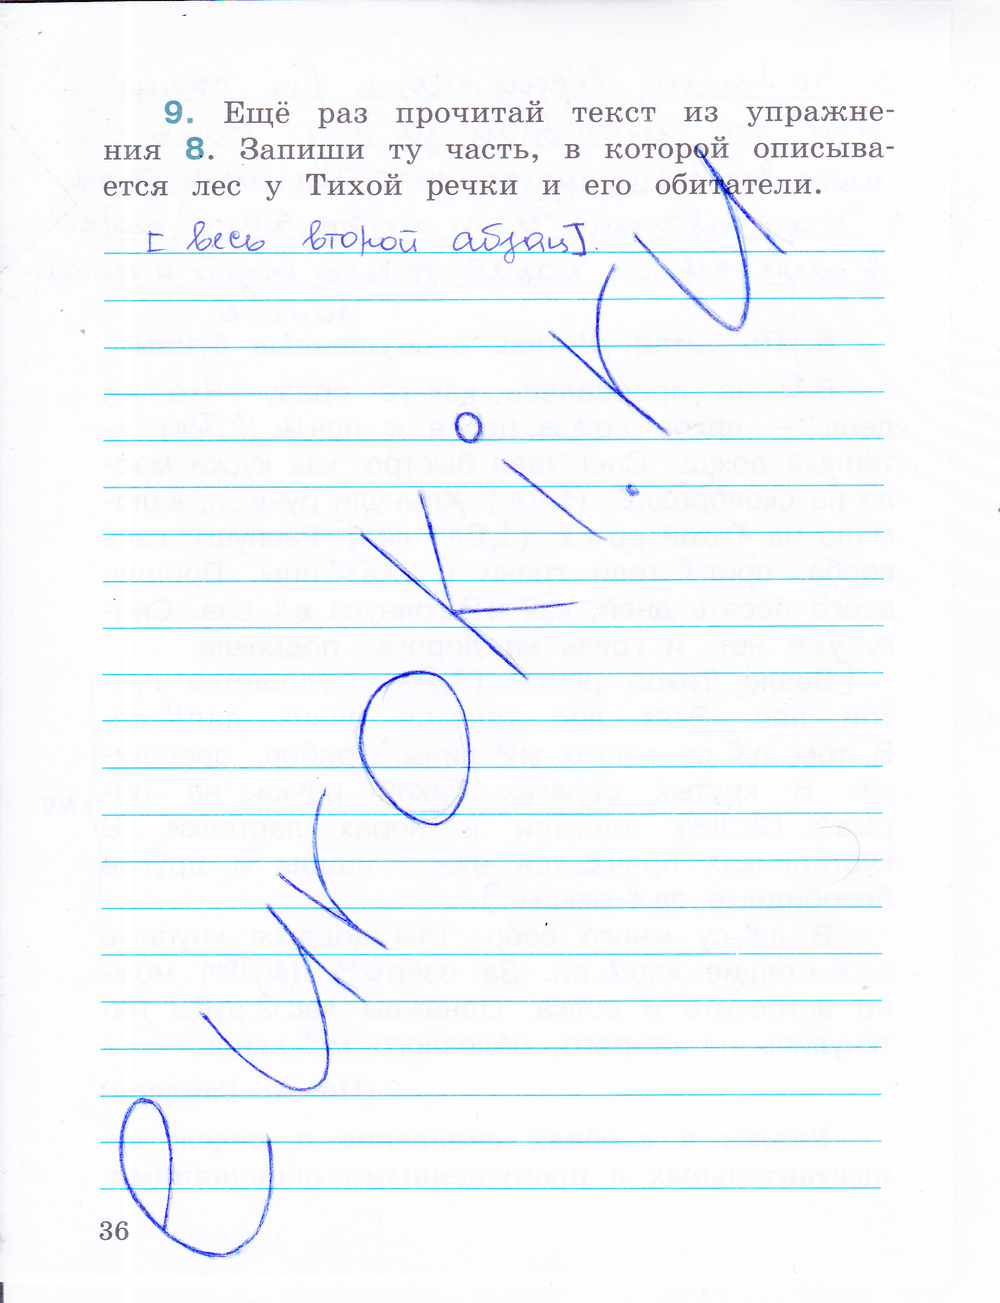 9. Ещё раз прочитай текст из упражне-
ния 8. Запиши ту часть, в которой описыва-
ется лес у Тихой речки и его обитатели.
[весь второй абзац].
еуроки.ру
36